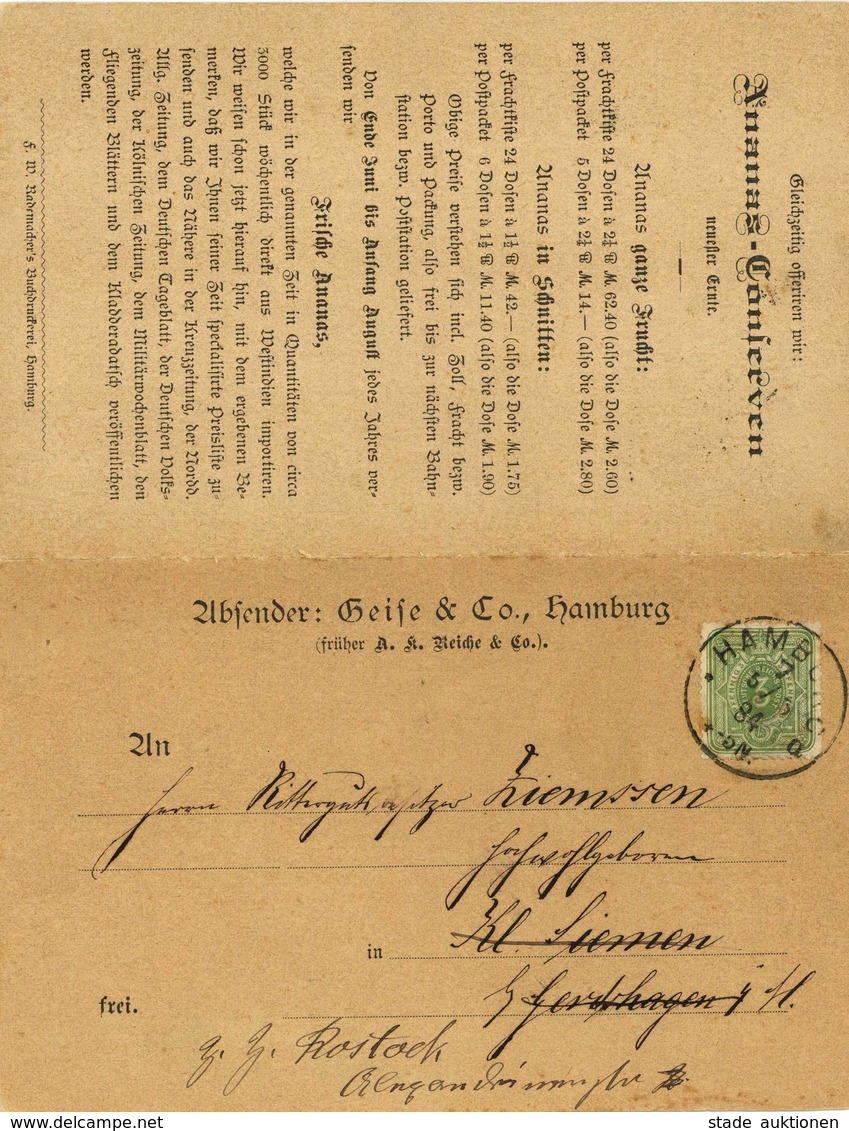 Gleichzeitig offeriren wir:
Ananas-Conserven
neuester Ernte.
Ananas ganze Frucht:
per Frachtkiste 24 Dosen à 2½ ℔ M. 62.40 (also die Dose M. 2.60)
per Postpacket 5 Dosen à 2½ ℔ M. 14.— (also die Dose M. 2.80)
Ananas in Schnitten:
per Frachtkiste 24 Dosen à 1½ ℔ M. 42.— (also die Dose M. 1.75)
per Postpacket 6 Dosen à 1½ ℔ M. 11.40 (also die Dose M. 1.90)
Obige Preise verstehen sich incl. Zoll, Fracht bezw.
Porto und Packung, also frei bis zur nächsten Bahn-
station bezw. Poststation geliefert.
Von Ende Juni bis Anfang August jedes Jahres ver-
senden wir
Frische Ananas,
welche wir in der genannten Zeit in Quantitäten von circa
3000 Stück wöchentlich direkt aus Westindien importiren.
Wir weisen schon jetzt hierauf hin, mit dem ergebenen Be-
merken, daß wir Ihnen seiner Zeit specialisirte Preisliste zu-
senden und auch das Nähere in der Kreuzzeitung, der Nordd.
Allg. Zeitung, dem Deutschen Tageblatt, der Deutschen Volks-
zeitung, der Kölnischen Zeitung, dem Militärwochenblatt, den
Fliegenden Blättern und dem Kladderadatsch veröffentlichen
werden.
F. W. Rademacher's Buchdruckerei, Hamburg.
Absender: Geise & Co., Hamburg
(früher A. K. Reiche & Co.).
HAMBURG
1
5/5
84
An
Herrn Rittergutsbesitzer Ziemssen
Hochwohlgeboren
in Kl. Siemen
frei.
Rostock
stade auktionen